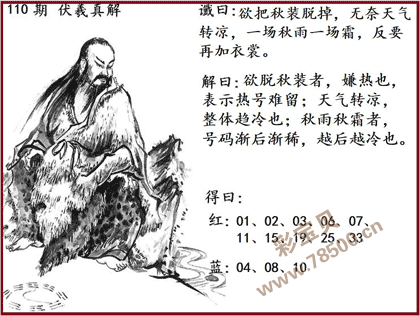 110期 伏羲真解
谶曰：欲把秋装脱掉，无奈天气
转凉，一场秋雨一场霜，反要
再加衣裳。
解曰：欲脱秋装者，嫌热也，
表示热号难留；天气转凉，
整体趋冷也；秋雨秋霜者，
号码渐后渐稀，越后越冷也。
得曰：
红：01、02、03、06、07、
11、15、19、25、33
蓝：04、08、10
彩宝贝
www.78500.cn